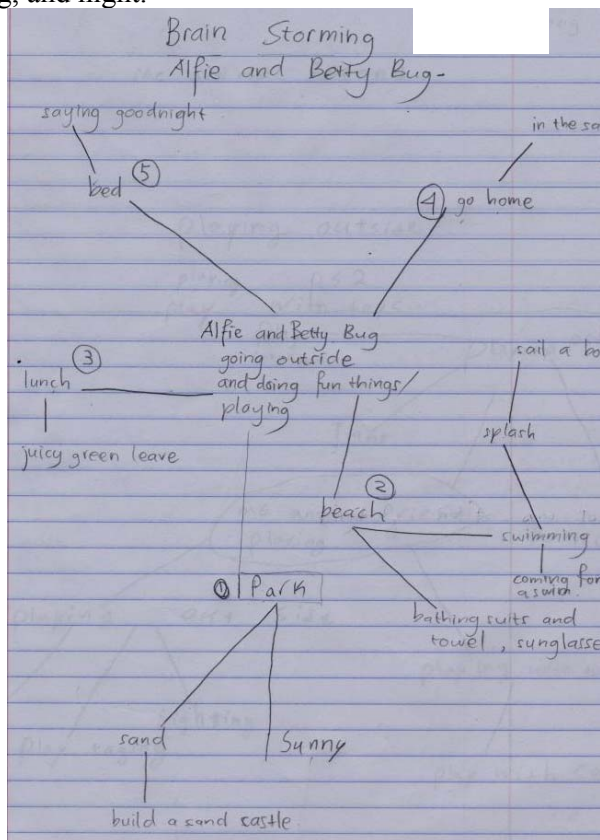 g, and night.
Brain Storming
Alfie and Betty Bug-
saying goodnight
in the sa
bed ⑤
④ go home
Alfie and Betty Bug
going outside
and doing fun things/
playing
sail a bo
③
lunch
splash
juicy green leave
②
beach
swimming
① Park
coming for
a swim.
bathing suits and
towel, sunglasse
sand
Sunny
build a sand castle.